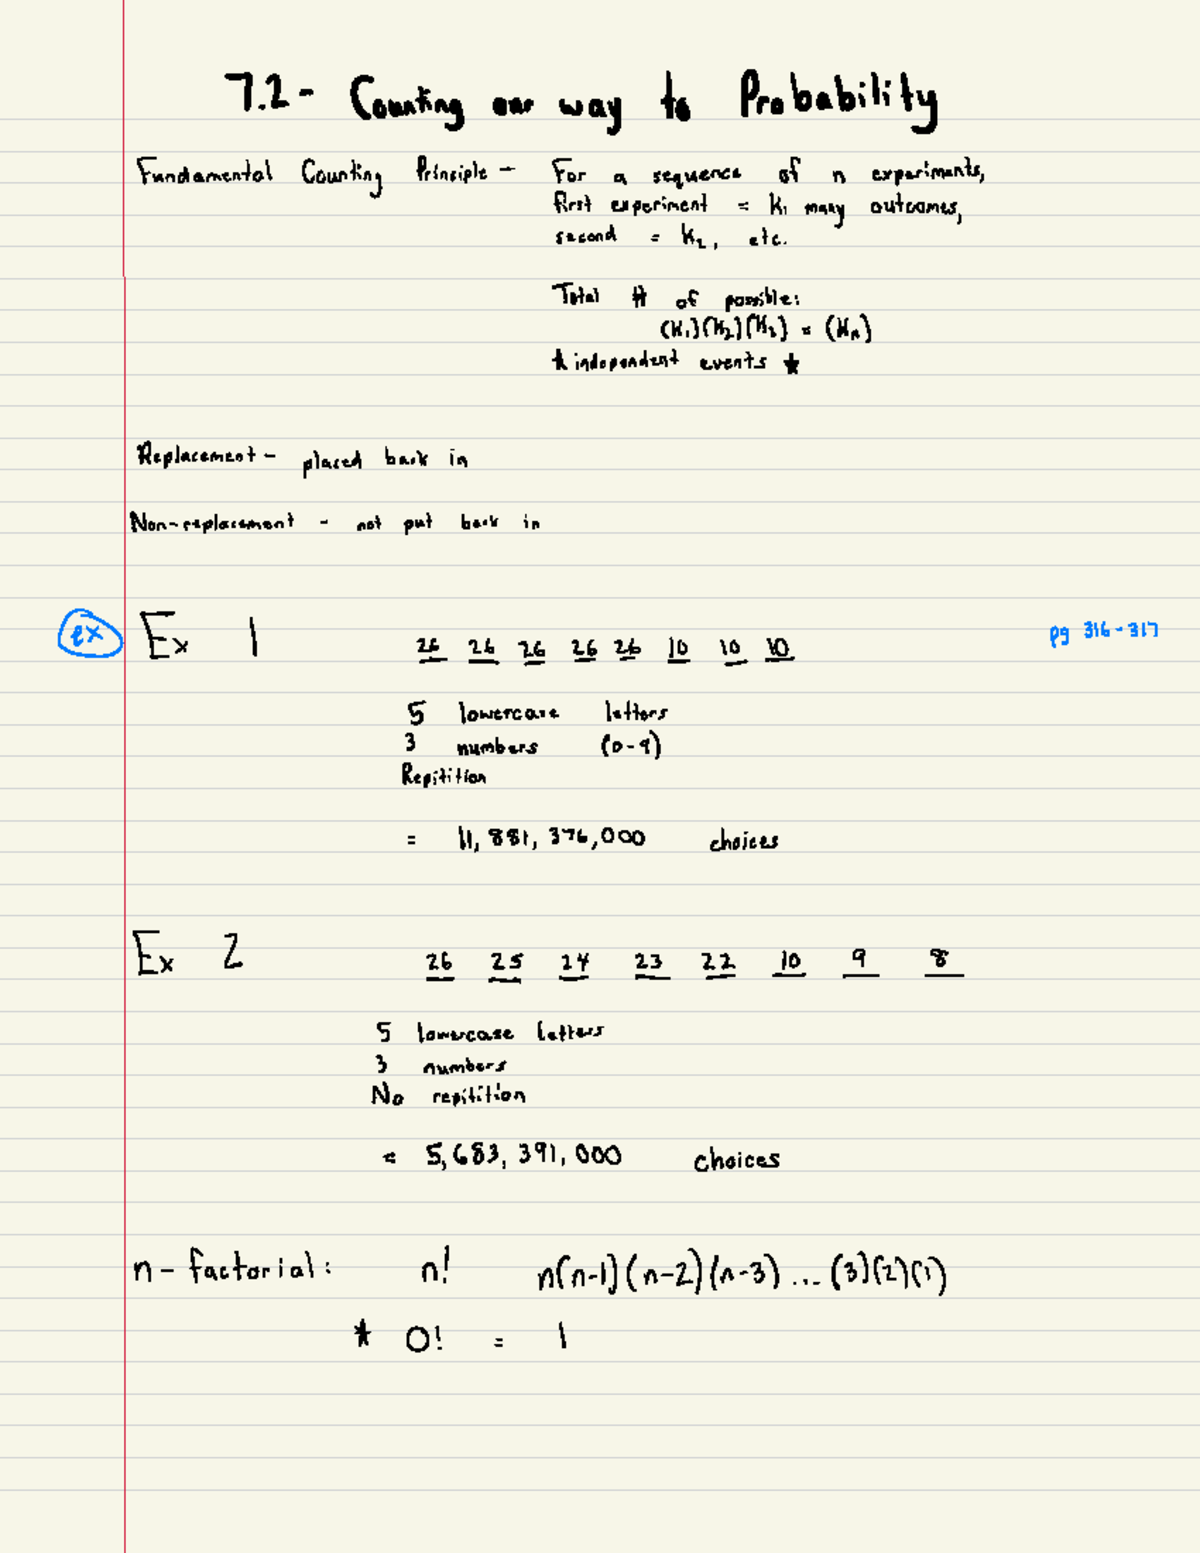 7.2 - Counting our way to Probability
Fundamental Counting Principle - For a sequence of n experiments,
first experiment = K₁ many outcomes,
second = K₂, etc.
Total # of possible:
(K₁)(K₂)(K₃) = (Kₙ)
* independent events ★
Replacement - placed back in
Non-replacement - not put back in
ex Ex 1 26 26 26 26 26 10 10 10 pg 316-317
5 lowercase letters
3 numbers (0-9)
Repitition
= 11,881,376,000 choices
Ex 2 26 25 24 23 22 10 9 8
5 lowercase letters
3 numbers
No repitition
= 5,683,391,000 choices
n-factorial: n! n(n-1)(n-2)(n-3)...(3)(2)(1)
★ 0! = 1